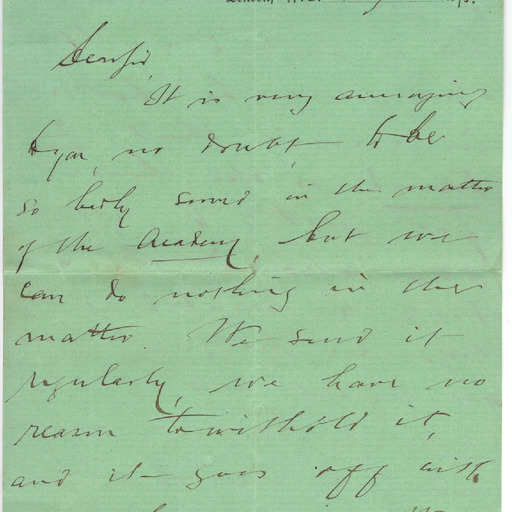 London, W.C.
Dear Sir,
It is very annoying
to you, no doubt, to be
so badly served in the matter
of the Academy, but we
can do nothing in the
matter. We send it
regularly, we have no
reason to withold it,
and it goes off with